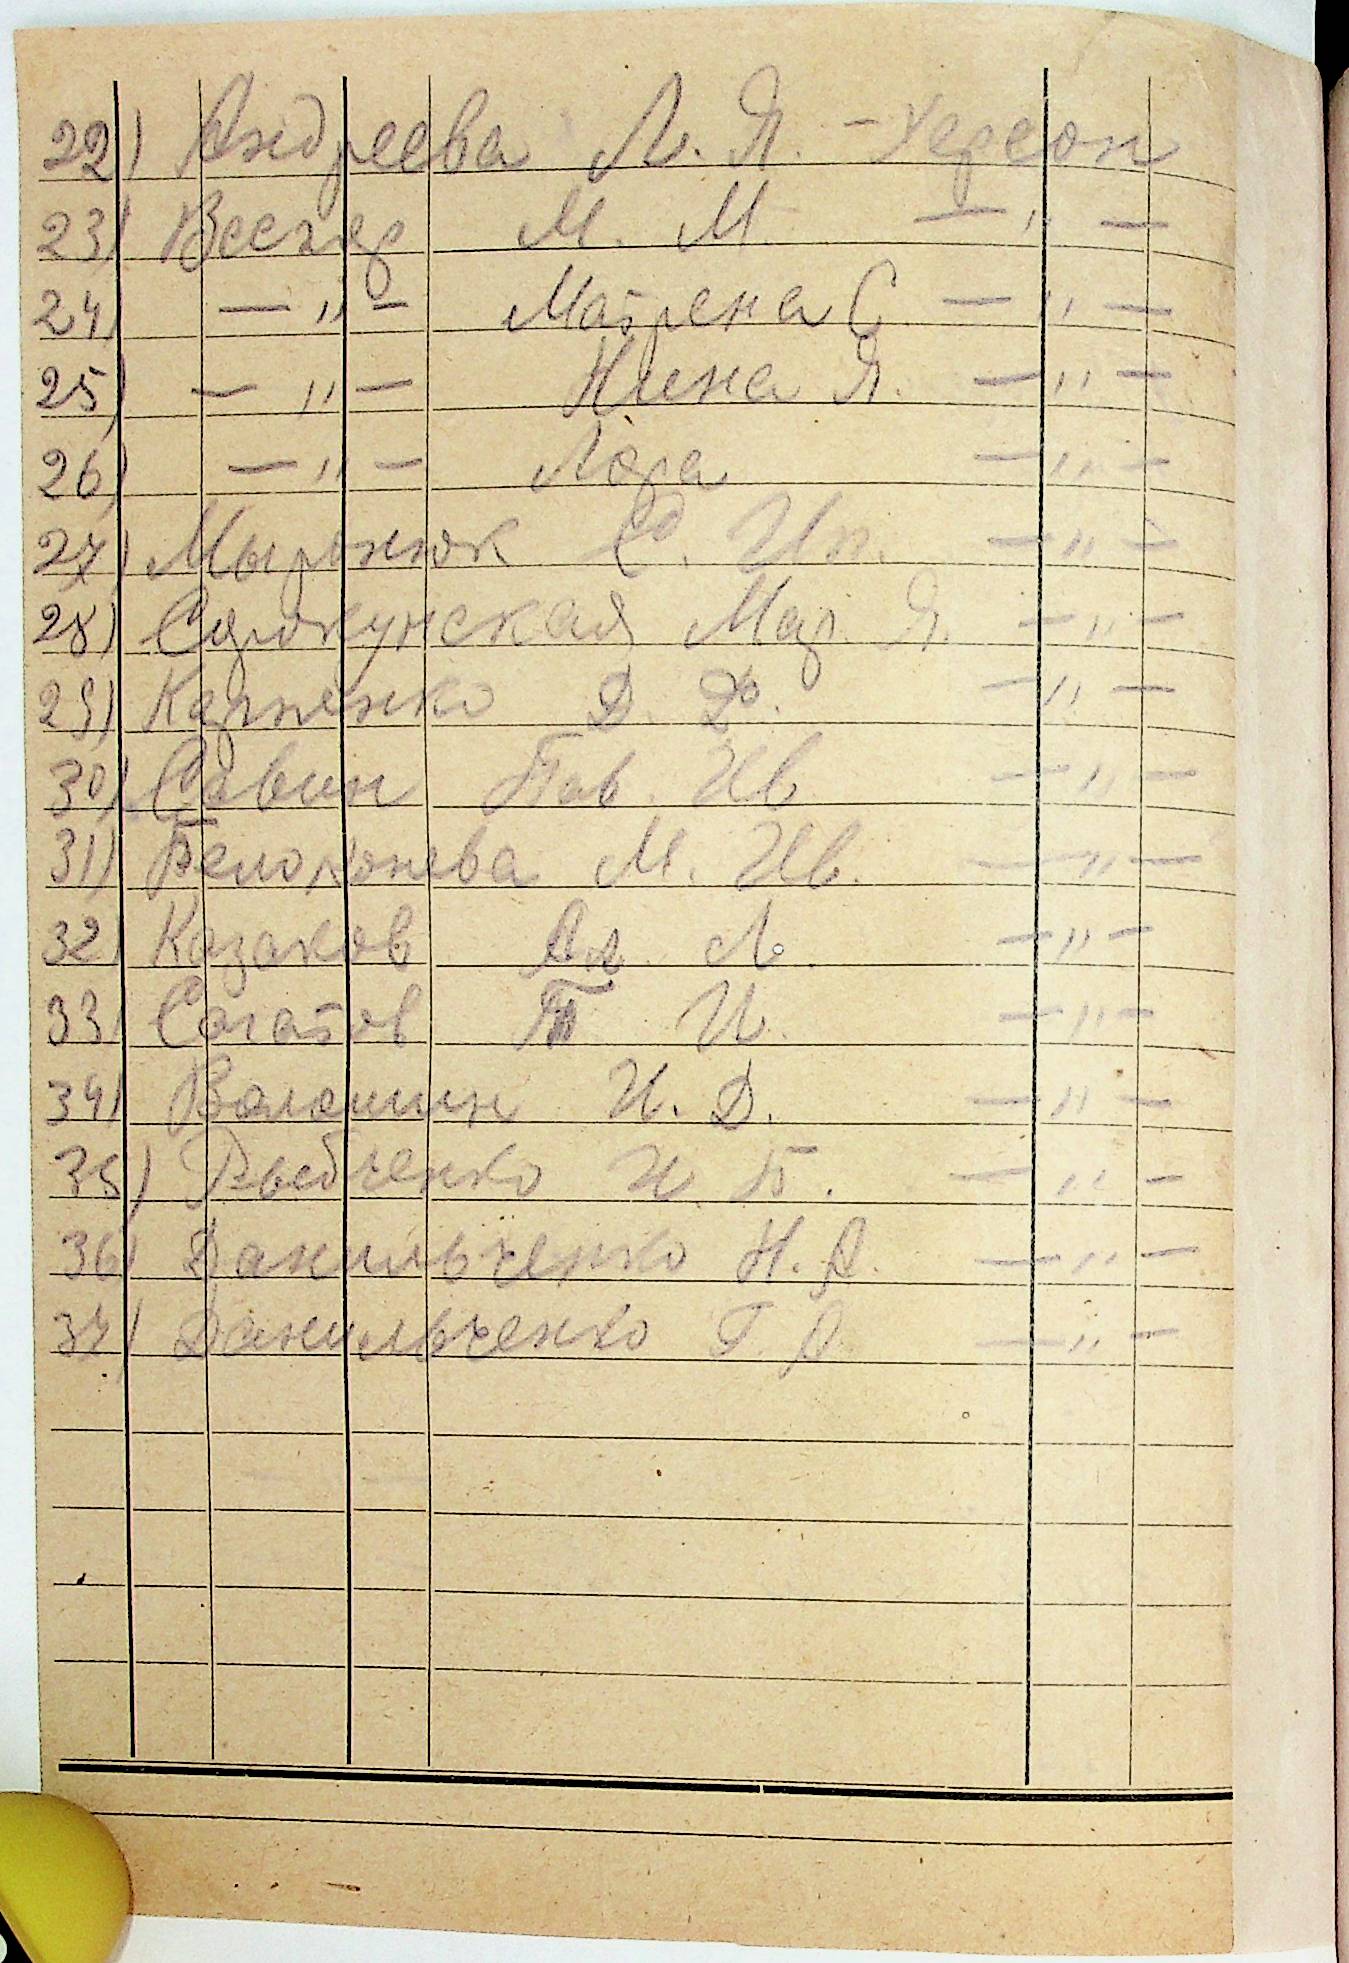 22) Андреева Л. Я. - Херсон
23) М. М. — " —
24) — " — Матрена С. — " —
25) — " — Нина Я. — " —
26) — " — Лора — " —
27) — " —
28) Мар. Я. — " —
29) Карпенко Д. Ф. — " —
30) Савин Пав. Ив. — " —
31) Белоконева М. Ив. — " —
32) Казаков Ал. Л. — " —
33) Сагатов И. — " —
34) Волошин И. Д. — " —
35) Рыбченко — " —
36) Данильченко Н. А. — " —
37) Данильченко Г. А. — " —